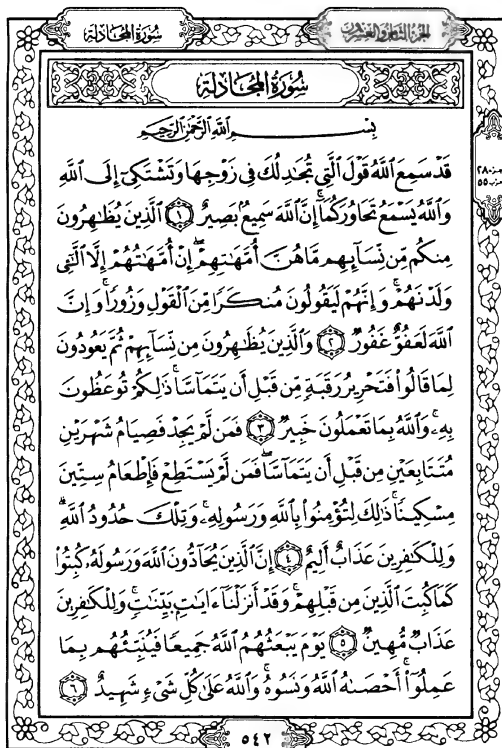 سُورَةُ المُجَادلَة
الجُزءُ الثَّامِنُ وَالعِشْرُونَ
سُورَةُ المُجَادلَة
بِسْمِ اللَّهِ الرَّحْمَٰنِ الرَّحِيمِ
قَدْ سَمِعَ اللَّهُ قَوْلَ الَّتِي تُجَٰدِلُكَ فِي زَوْجِهَا وَتَشْتَكِيٓ إِلَى اللَّهِ
وَاللَّهُ يَسْمَعُ تَحَاوُرَكُمَآ ۚ إِنَّ اللَّهَ سَمِيعٌۢ بَصِيرٌ ۝١ الَّذِينَ يُظَٰهِرُونَ
مِنكُم مِّن نِّسَآئِهِم مَّا هُنَّ أُمَّهَٰتِهِمْ ۖ إِنْ أُمَّهَٰتُهُمْ إِلَّا الَّٰٓـِٔي
وَلَدْنَهُمْ ۚ وَإِنَّهُمْ لَيَقُولُونَ مُنكَرًا مِّنَ الْقَوْلِ وَزُورًا ۚ وَإِنَّ
اللَّهَ لَعَفُوٌّ غَفُورٌ ۝٢ وَالَّذِينَ يُظَٰهِرُونَ مِن نِّسَآئِهِمْ ثُمَّ يَعُودُونَ
لِمَا قَالُوا۟ فَتَحْرِيرُ رَقَبَةٍ مِّن قَبْلِ أَن يَتَمَآسَّا ۚ ذَٰلِكُمْ تُوعَظُونَ
بِهِۦ ۚ وَاللَّهُ بِمَا تَعْمَلُونَ خَبِيرٌ ۝٣ فَمَن لَّمْ يَجِدْ فَصِيَامُ شَهْرَيْنِ
مُتَتَابِعَيْنِ مِن قَبْلِ أَن يَتَمَآسَّا ۖ فَمَن لَّمْ يَسْتَطِعْ فَإِطْعَامُ سِتِّينَ
مِسْكِينًا ۚ ذَٰلِكَ لِتُؤْمِنُوا۟ بِاللَّهِ وَرَسُولِهِۦ ۚ وَتِلْكَ حُدُودُ اللَّهِ ۗ
وَلِلْكَٰفِرِينَ عَذَابٌ أَلِيمٌ ۝٤ إِنَّ الَّذِينَ يُحَآدُّونَ اللَّهَ وَرَسُولَهُۥ كُبِتُوا۟
كَمَا كُبِتَ الَّذِينَ مِن قَبْلِهِمْ ۚ وَقَدْ أَنزَلْنَآ ءَايَٰتٍۭ بَيِّنَٰتٍ ۚ وَلِلْكَٰفِرِينَ
عَذَابٌ مُّهِينٌ ۝٥ يَوْمَ يَبْعَثُهُمُ اللَّهُ جَمِيعًا فَيُنَبِّئُهُم بِمَا
عَمِلُوٓا۟ ۚ أَحْصَىٰهُ اللَّهُ وَنَسُوهُ ۚ وَاللَّهُ عَلَىٰ كُلِّ شَيْءٍ شَهِيدٌ ۝٦
٥٤٢